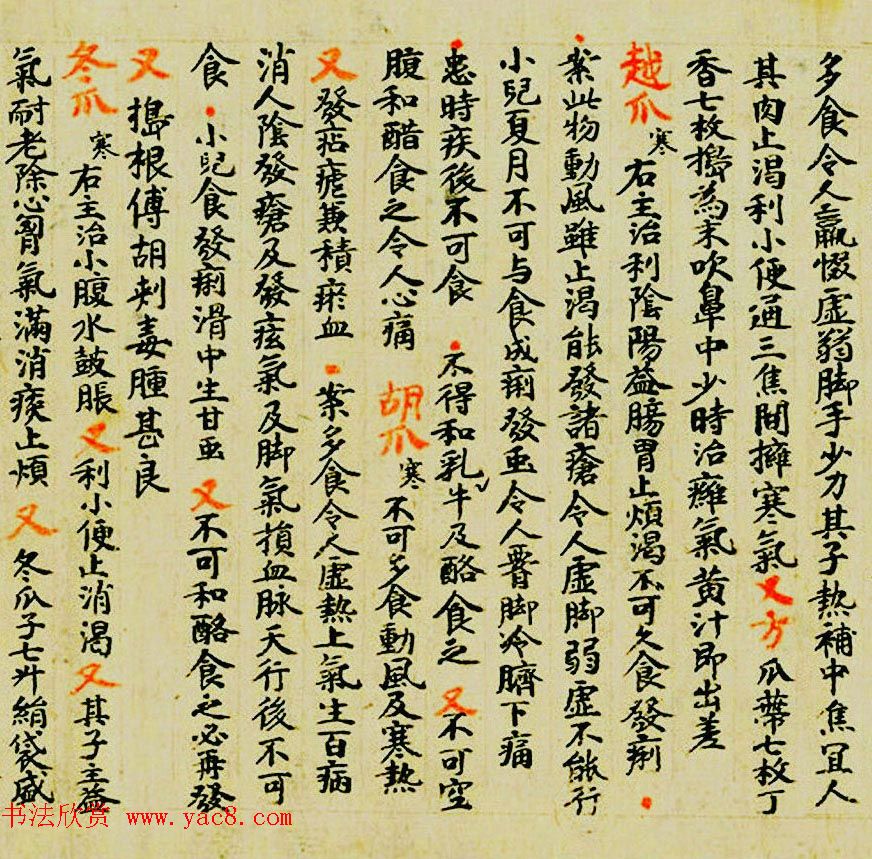 多食令人羸惙虛弱脚手少力其子熱補中焦宜人
其肉止渴利小便通三焦間擁寒氣 又方 瓜蔕七枚丁
香七枚搗為末吹鼻中少時治癰氣黃汁即出差
越瓜 寒 右主治利陰陽益腸胃止煩渴不可久食發痢
案此物動風雖止渴能發諸瘡令人虛脚弱虛不能行
小兒夏月不可与食成痢發虫令人腰脚冷臍下痛
患時疾後不可食 不得和乳牛及酪食之 又 不可空
腹和醋食之令人心痛 胡瓜 寒 不可多食動風及寒熱
又 發痁瘧兼積瘀血 案多食令人虛熱上氣生百病
消人陰發瘡及發痃氣及脚氣損血脉天行後不可
食 小兒食發痢滑中生甘虫 又 不可和酪食之必再發
又 搗根傅胡刺毒腫甚良
冬瓜 寒 右主治小腹水鼓脹 又 利小便止消渴 又 其子主益
氣耐老除心胷氣滿消痰止煩 又 冬瓜子七升絹袋盛
书法欣赏 www.yac8.com